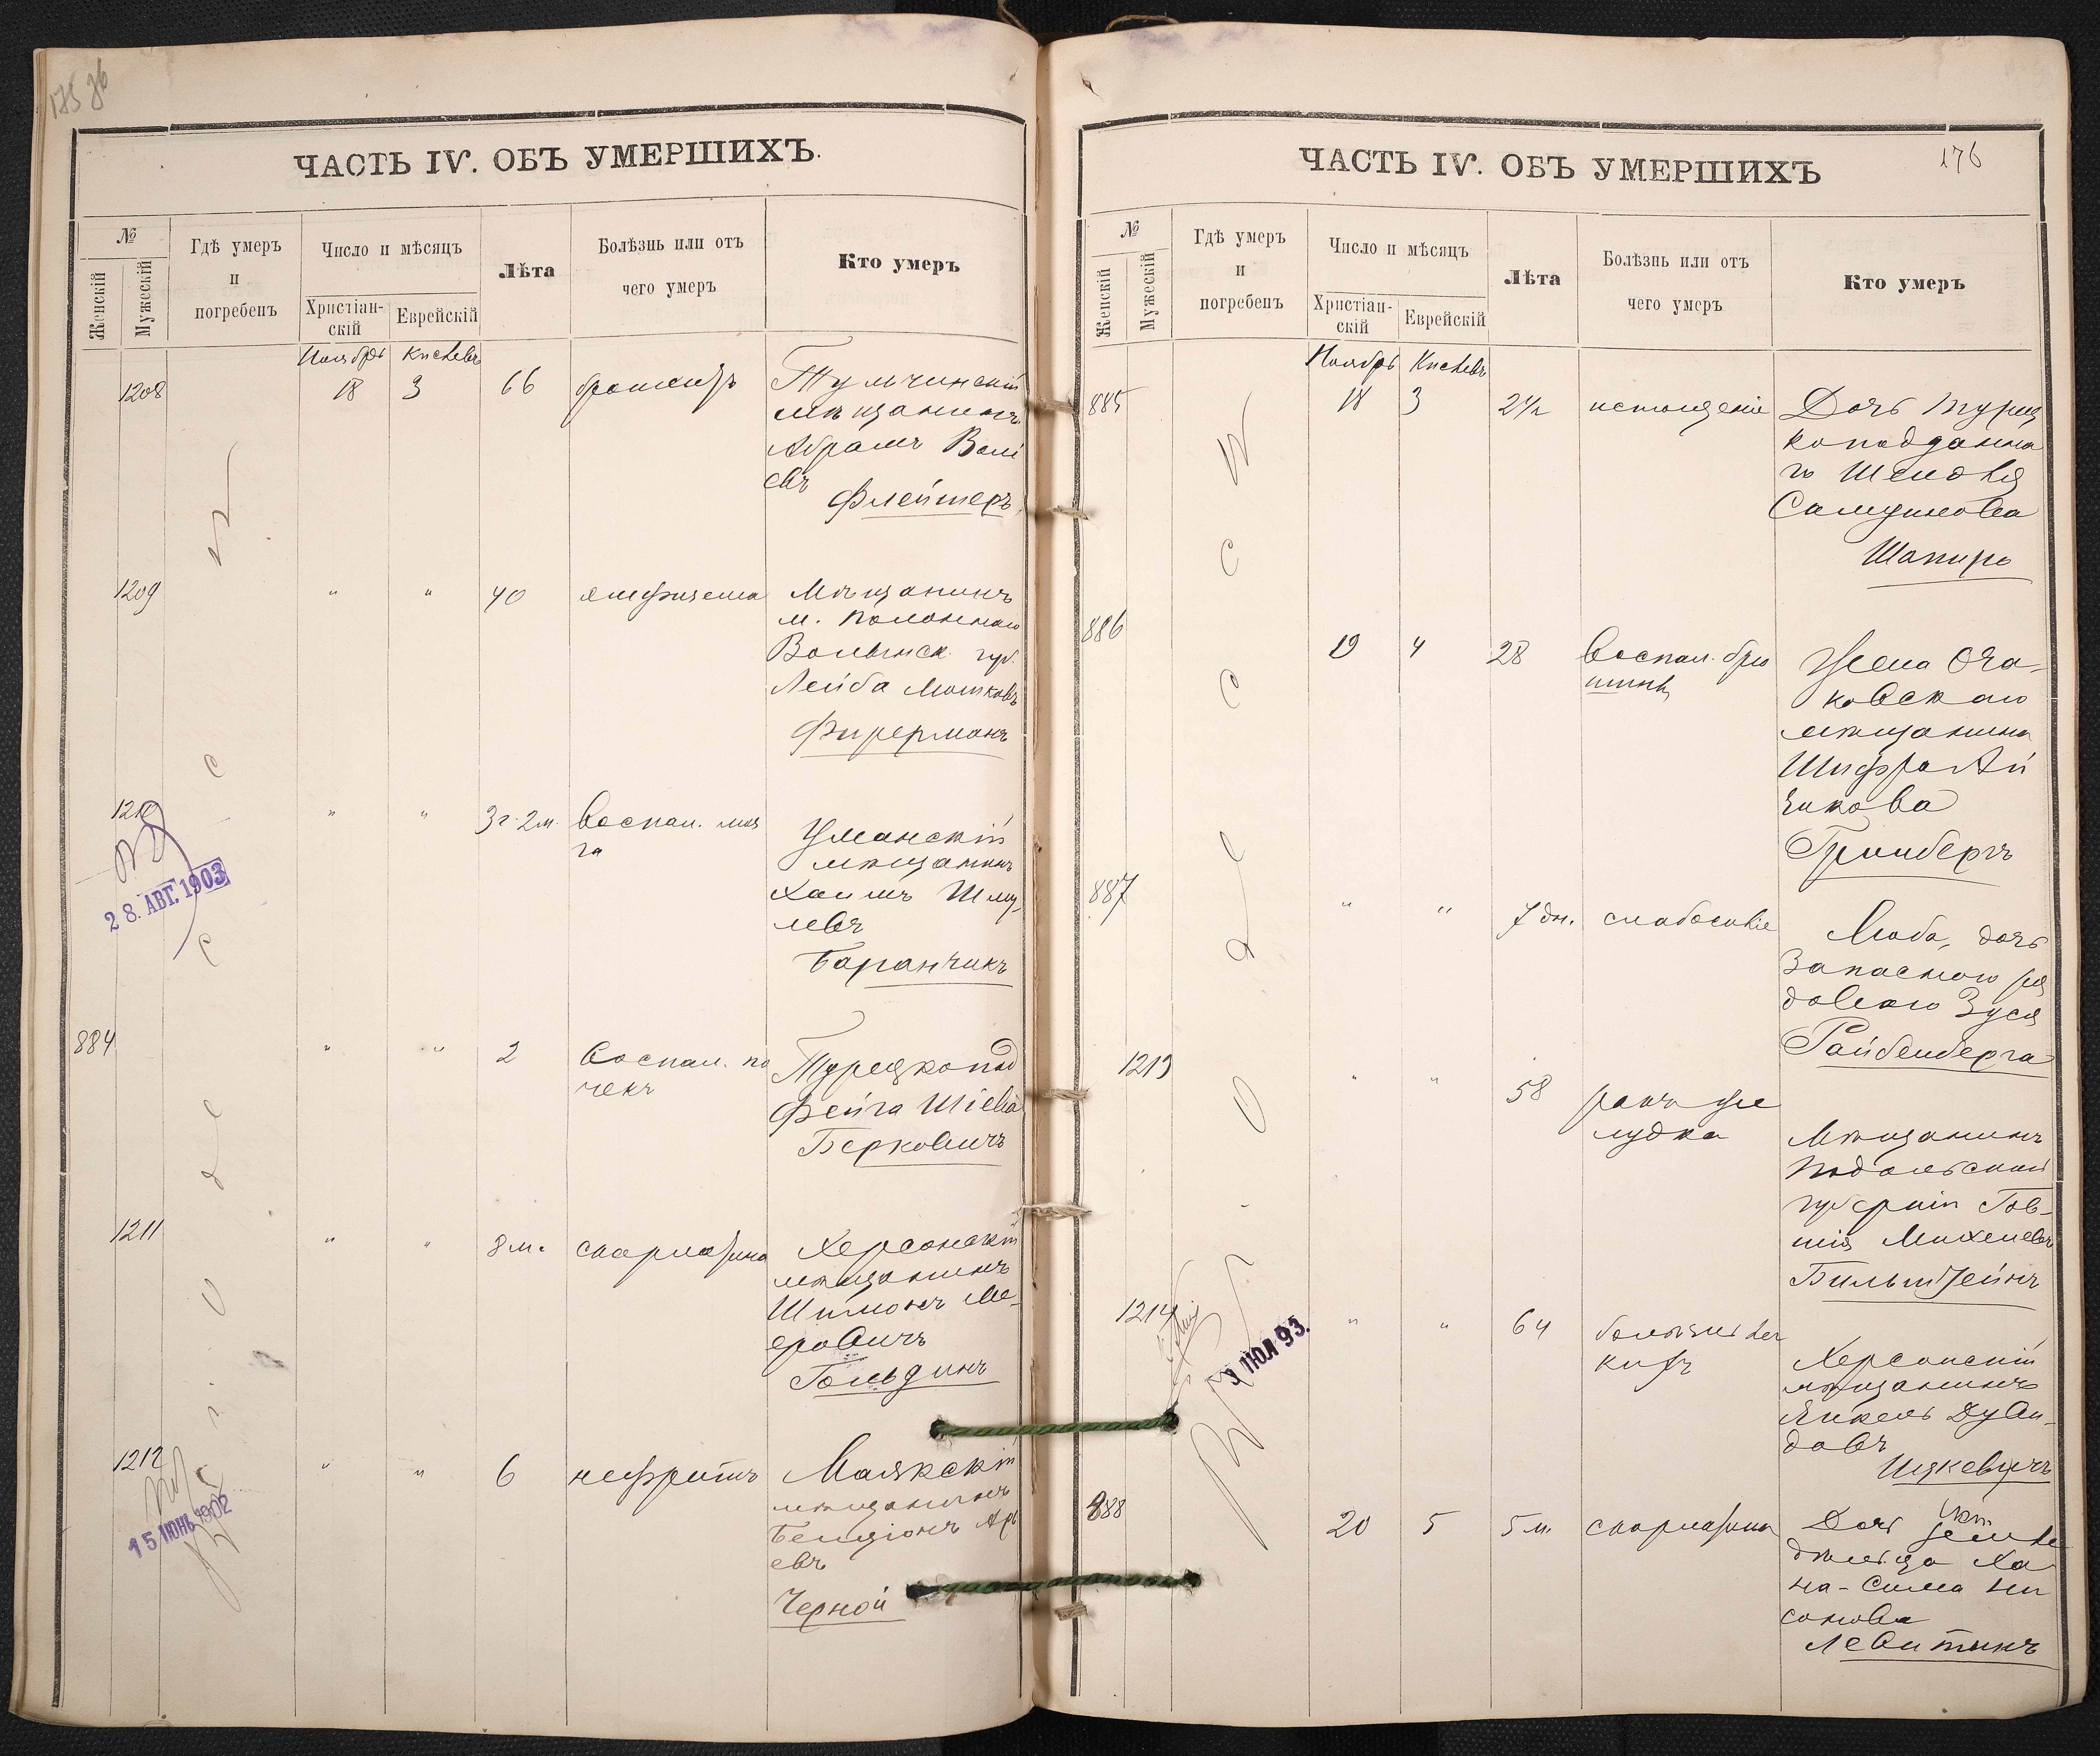 175 об
ЧАСТЬ IV. ОБЪ УМЕРШИХЪ.
№
Женскій
Мужескій
Гдѣ умеръ
и
погребенъ
Число и мѣсяцъ
Христіан-
скій
Еврейскій
Лѣта
Болѣзнь или отъ
чего умеръ
Кто умеръ
Ноябрь Кислевъ
1208 18 3 66 бронхитъ Тульчинскій
мѣщанинъ
Абрамъ
евъ
Флейшеръ
1209 " " 40 эмфизема Мѣщанинъ
м. Полоннаго
Волынск. губ.
Лейба Мошковъ
Фирерманъ
1210 " " 3 г. 2 м. Воспал. моз
га
Уманскій
мѣщанинъ
Хаимъ Шму-
левъ
Баранчикъ
28. АВГ. 1903
884 " " 2 Воспал. по
чекъ
Турецкопод
Фейга Шіева
Берковичъ
1211 " " 8 м. скарлатина Херсонскій
мѣщанинъ
Шимонъ Ме-
еровичъ
Гольдинъ
1212 " " 6 нефритъ Маякскій
мѣщанинъ
Бенціонъ Ар
евъ
Черной
15 ИЮНЬ 1902
Одесса
176
ЧАСТЬ IV. ОБЪ УМЕРШИХЪ
№
Женскій
Мужескій
Гдѣ умеръ
и
погребенъ
Число и мѣсяцъ
Христіан-
скій
Еврейскій
Лѣта
Болѣзнь или отъ
чего умеръ
Кто умеръ
Ноябрь Кислевъ
885 18 3 2½ истощеніе Дочь турец
коподданна
го Шендля
Самуилова
Шапиро
886 19 4 28 Воспал. брю
шины
Жена Оча-
ковскаго
мѣщанина
Шифра Ай
зикова
Гринбергъ
887 " " 7 дн. слабосиліе Люба, дочь
Запаснаго ря
доваго Зуся
Райбенберга
1213 " " 58 ракъ же
лудка
Мѣщанинъ
Подольской
губерніи Гов-
шія Михелевъ
Бильштейнъ
1214 " " 64 болѣзнь лег
кихъ
Херсонскій
мѣщанинъ
Янкель Дуви-
довъ
Ицкевичъ
9 ІЮЛ 93.
888 20 5 5 м. скарлатина Дочь земле
дѣльца Ха
на-Сима Ни
сонова
Левитинъ
Одесса